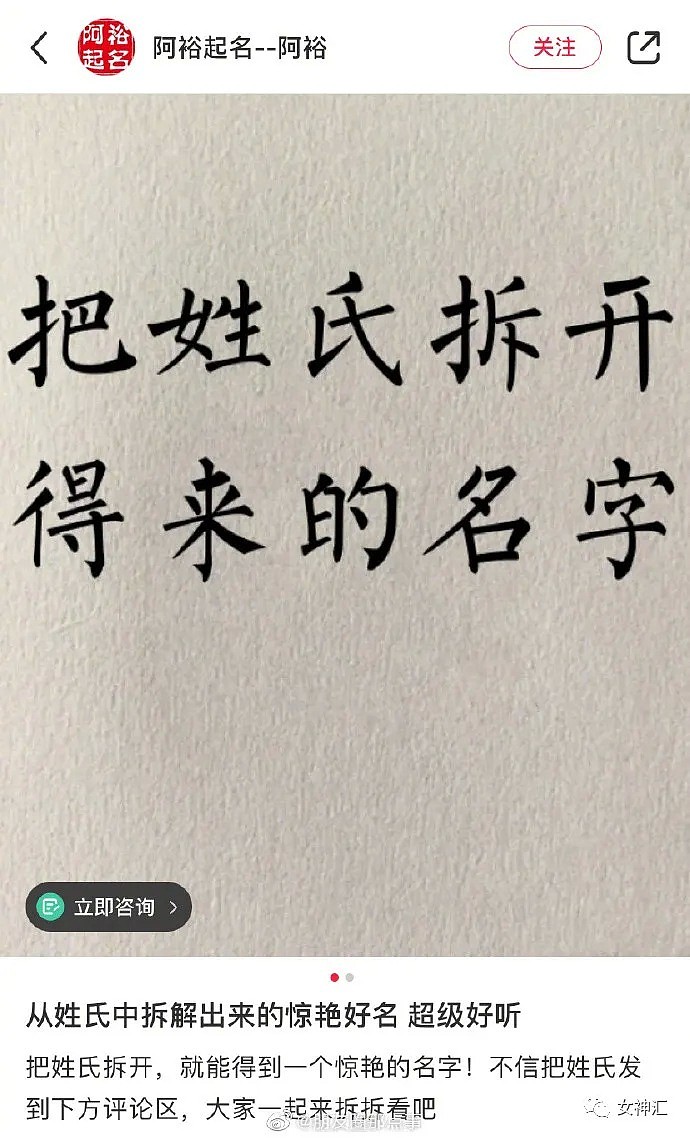 阿裕起名
阿裕起名--阿裕
关注
把姓氏拆开
得来的名字
立即咨询
从姓氏中拆解出来的惊艳好名 超级好听
把姓氏拆开，就能得到一个惊艳的名字！不信把姓氏发
到下方评论区，大家一起来拆拆看吧
@朋友圈那点事
女神汇